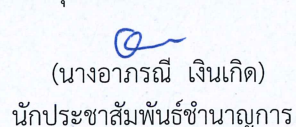 (นางอาภรณี เงินเกิด)
นักประชาสัมพันธ์ชำนาญการ